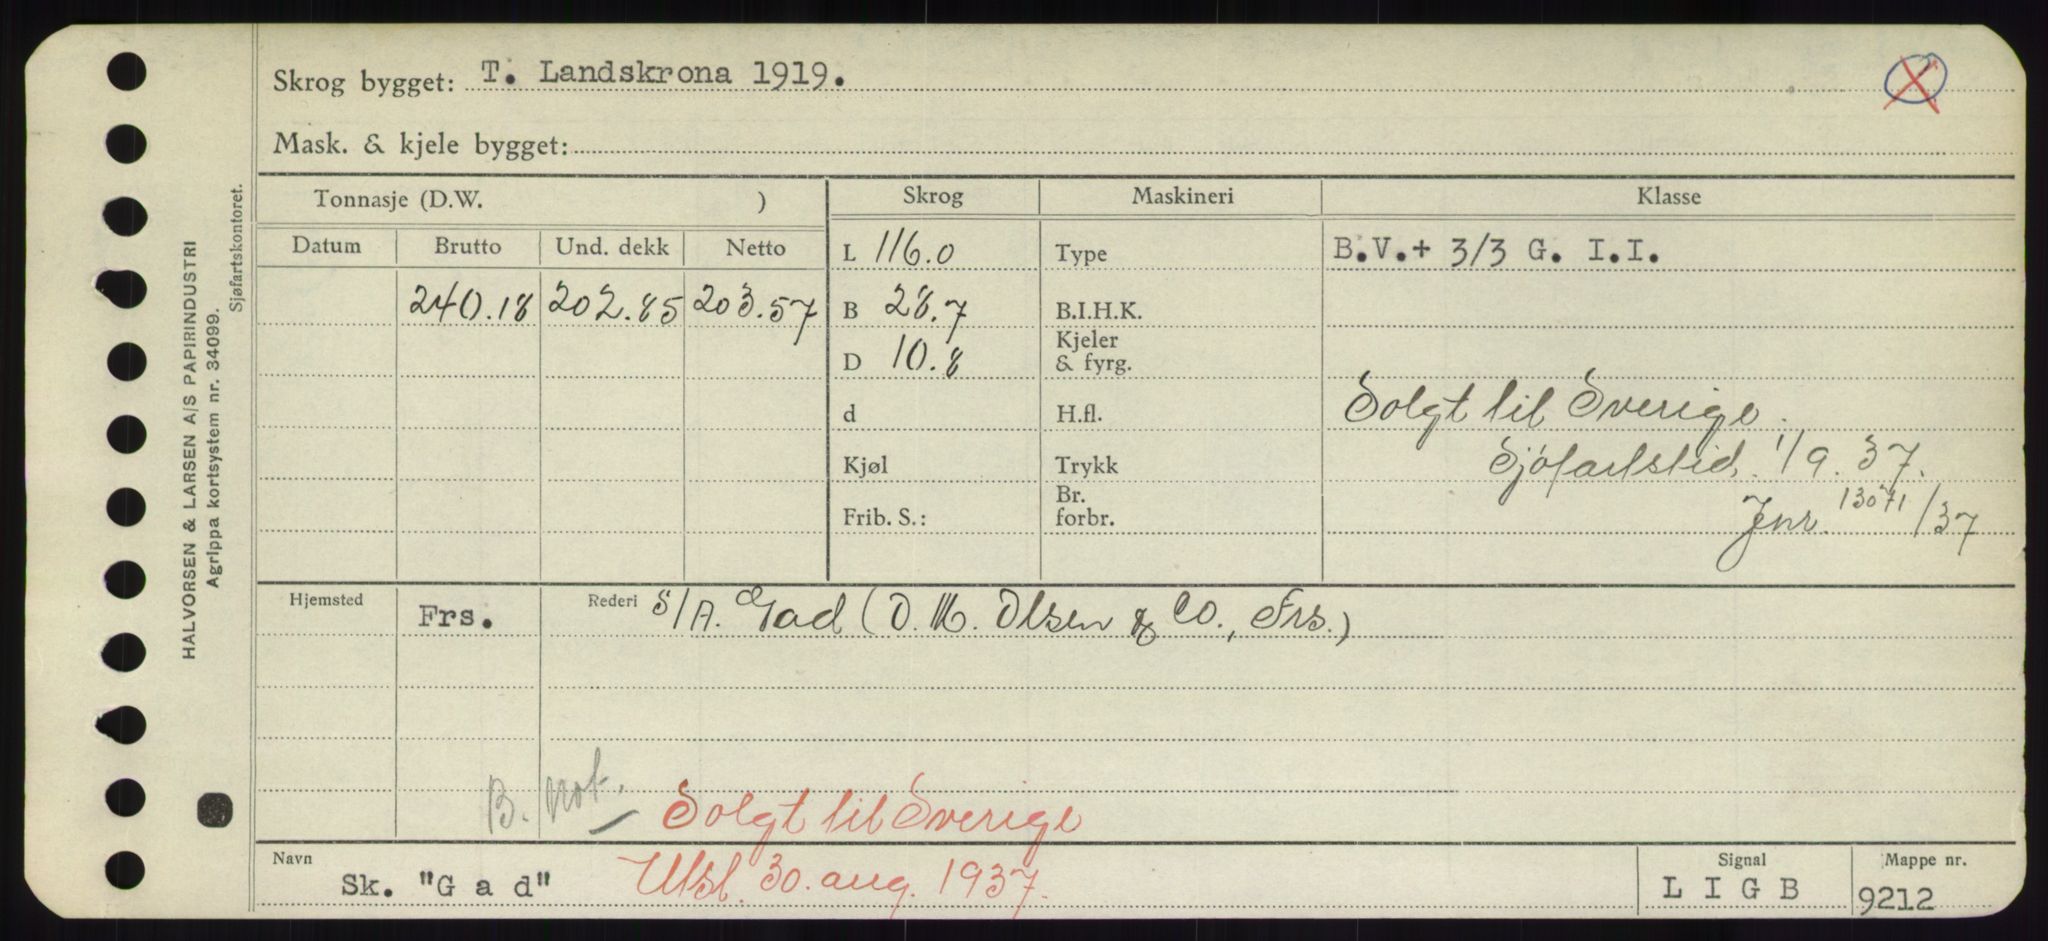 Skrog bygget: T. Landskrona 1919.
Mask. & kjele bygget:
Tonnasje (D.W. ) Skrog Maskineri Klasse
Datum Brutto Und. dekk Netto L 116.0 Type B.V.+ 3/3 G. I.I.
240.18 202.85 203.57 B 28.7 B.I.H.K.
D 10.8 Kjeler & fyrg.
d H.fl. Solgt til Sverige.
Kjøl Trykk Sjöfartstid. 1/9.37.
Frib. S.: Br. forbr. Jnr. 13071/37
Hjemsted Frs. Rederi S/A. Gad (O. M. Olsen & Co., Frs.)
B. not. Solgt til Sverige
Navn Sk. "G a d" Utsl. 30. aug. 1937. Signal L I G B Mappe nr. 9212
HALVORSEN & LARSEN A/S PAPIRINDUSTRI
Agrippa kortsystem nr. 34099.
Sjøfartskontoret.